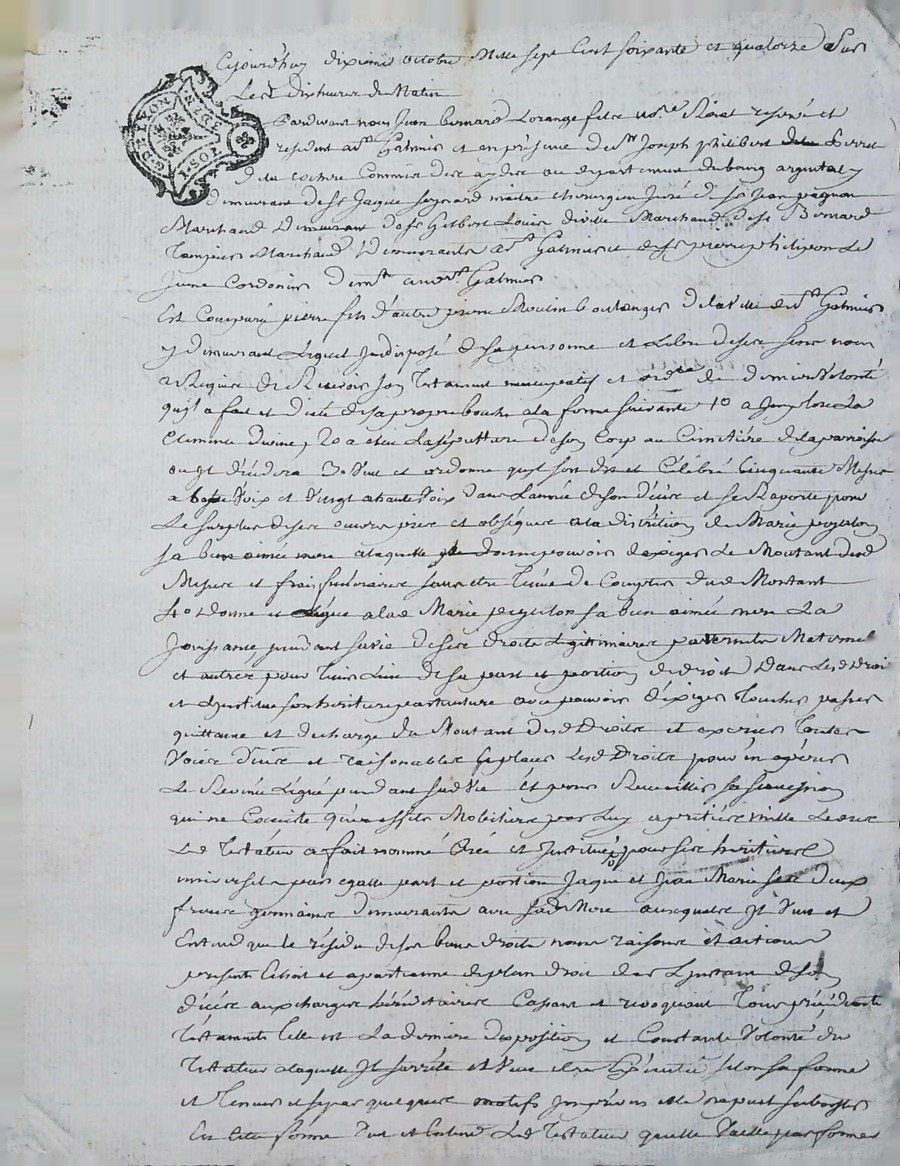 Cejourd'huy dixieme octobre Mille sept Cent soixante et quatorze Sur
Les dix heures du Matin
G. DE LYON
1. SOL
Pardevant nous Jean bernard Lorange fils no.re Royal reservé et
resident a S.t Galmier et en présence de S.r Joseph philibert Perret
de la Commis des aydes au departement du bourg argental y
demeurant de S.r Jaque maitre chirurgien Juré de S.r Jean pagnon
Marchand demeurant de S.r Gilbert Louis Marchand de S.r Bernard
Marchand demeurants a S.t Galmier et de S.r pierre philipon Le
Jeune Cordonier dem.t aud S.t Galmier
Est Comparu pierre fils d'autre pierre Moulin boulanger de la Ville de S.t Galmier
y demeurant Lequel Indisposé de sa personne et Libre de ses sens nous
a Requere de Recevoir son Testament nuncupatif et ord.re de derniere Volonté
qu'il a fait et dicté de sa propre bouche a la forme suivante 1o a Imploré La
Clemence divine, 2o a elu La sépulture de son Corp au Cimetière de la parroisse
ou il décedera 3o Veut et ordonne qu'il soit dit et Célébré Cinquante Messes
a basse Voix et Vingt a haute Voix dans L'année de son décès et se Raporte pour
Le surplus de ses œuvres pies et obséques a la discrétion de Marie peyrton
sa bien aimée mere a laquelle donne pouvoir d'exiger Le Montant desd
Messes et frais funeraires sans etre Tenue de Compter dud Montant
4o donne et Légue a lad Marie peyrton sa bien aimée mere La
Jouissance pendant sa vie de ses droits Legitimaires paternels Maternel
et autres pour Tenir Lieu de sa part et portion de droit dans Lesd Droi
et L'institue son heritiere particuliere avec pouvoir d'exiger Toucher passer
quittance et decharge du Montant desd Droits et exercer Toutes
Voies dües et raisonables Replacer Lesd Droits pour en aperer
Le Revenu Légué pendant sad Vie Et pour Recueillir sa sucession
qui ne Consiste qu'en effets Mobiliers pour Luy a prix mille Livres
Led Testateur a fait nommé Créé et Institué pour ses heritiers
universels pour egalle part et portion Jaque et Jean Marie ses deux
freres germains demeurants avec sad Mere auxquels Il Veut et
Entend que le résidu de ses biens droits noms raisons et actions
presents Echoit et apartienne de plein droit des L'instant de son
décès aux charges héréditaires Cassant et revoquant Tous précédents
Testaments Telle est La derniere disposition et Constante Volonté du
Testateur a laquelle Il s'arrête et Veut etre Exécutée selon sa forme
et Teneur et si par quelques motifs Imprévus elle ne peut subsister
En Cette forme Veut et Entend Led Testateur qu'elle Vaille par forme